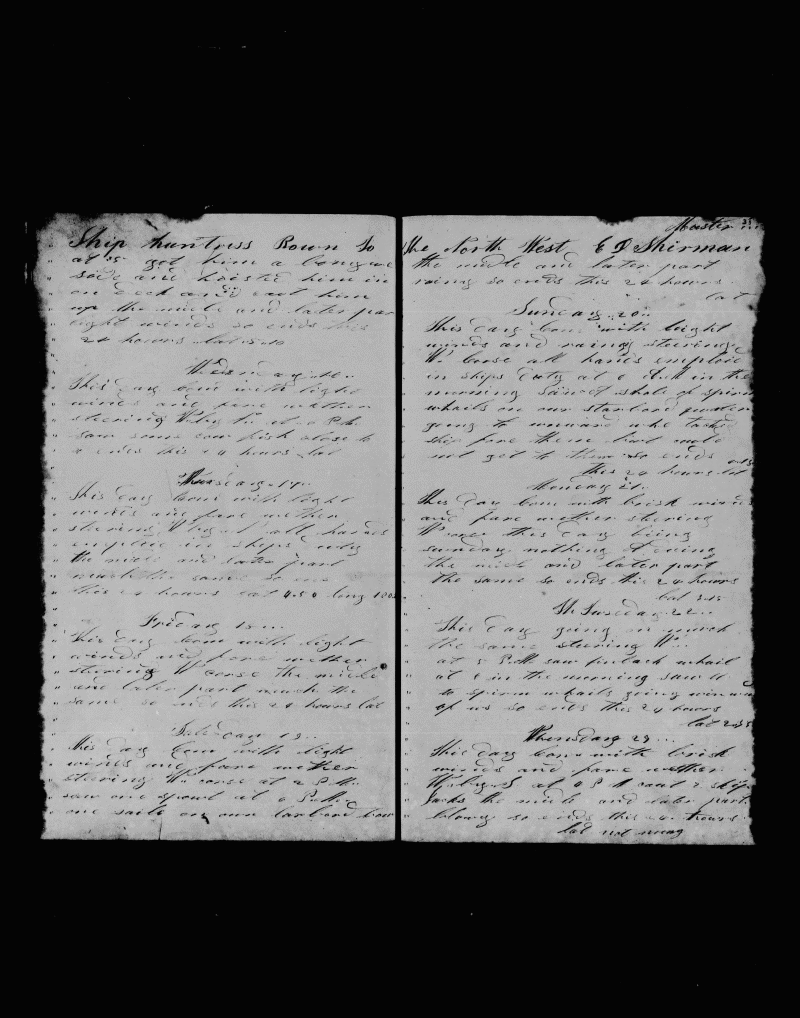 Ship huntress Bown to
at 35 got him a
side and hoisted him in
on deck and cut him
up the midle and later par
light winds so ends this
24 hours lat
Wedsnday
this day coms with light
winds and fare wether
stering W by
saw some cow fish close to
so ends this 24 hours lat
Thursday 17
this day coms with light
winds and fare wether
stering W all hands
emploie in ships duty
the midle and later part
much the same so ends
this 24 hours lat 4.50 long 180
Friday 18
this day coms with light
winds and fare wether
stering W corse the midle
and later part much the
same so ends this 24 hours lat
Saterday 19
this day coms with light
winds and fare wether
stering W corse at 2 P.M.
saw one spout at 6 P.M.
one saile on our larbord bow
Master
the North West E D Shirman
the midle and later part
rainy so ends this 24 hours
lat
Sunday 20
this day coms with light
winds and rainy stering
W corse all hands emploie
in ships duty at 6 in the
morning saw a shole of spirm
whails on our starbord quarter
going to winward whe tacke
ship fore them but could
not get to them so ends
this 24 hours lat
Monday 21
this day coms with brisk winds
and fare wether stering
W corse this day being
sunday nothing doing
the midle and later part
the same so ends this 24 hours
lat 3.15
Tuseday 22
this day going on much
the same stering W
at 5 P.M saw finback whail
at 6 in the morning saw
spirm whails going winwar
of us so ends this 24 hours
lat 2.35
Wensday 23
this day coms with brisk
winds and fare wether
W by S at 4 P M ship
Jacks the midle and later part
blowy so ends this 24 hours
lat not